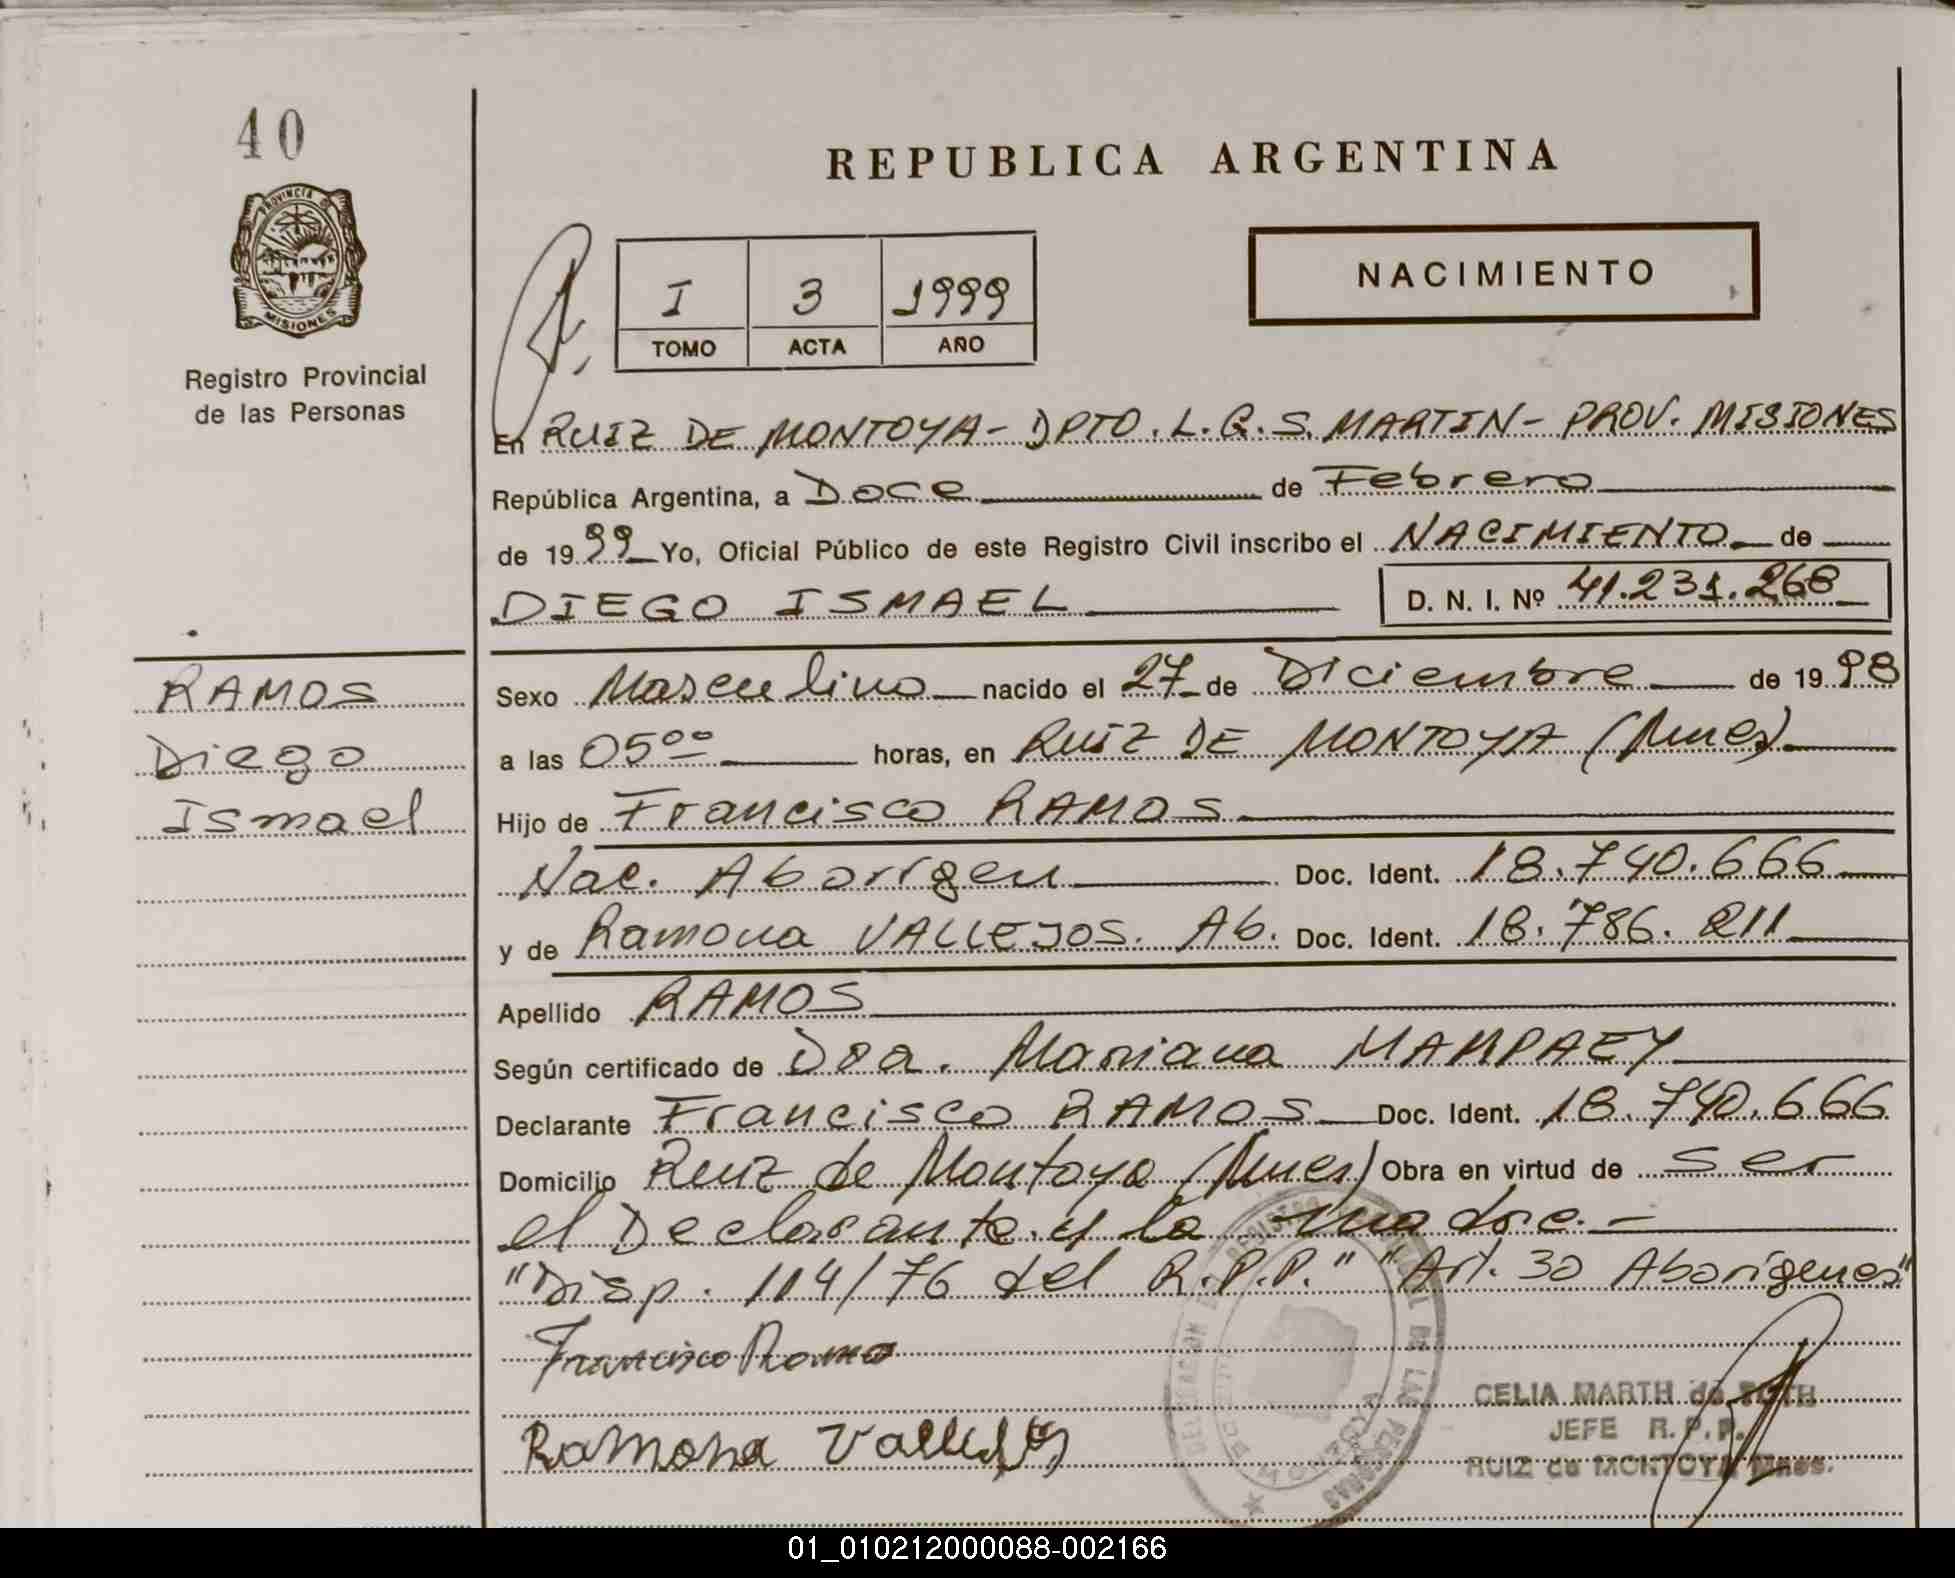 40
REPUBLICA ARGENTINA
PROVINCIA DE
MISIONES
Registro Provincial
de las Personas
I 3 1999
TOMO ACTA AÑO
NACIMIENTO
En RUIZ DE MONTOYA - DPTO. L. G. S. MARTIN - PROV. MISIONES
República Argentina, a Doce de Febrero
de 1999 Yo, Oficial Público de este Registro Civil inscribo el NACIMIENTO de
DIEGO ISMAEL D. N. I. Nº 41.231.268
RAMOS
Diego
Ismael
Sexo Masculino nacido el 27 de Diciembre de 1998
a las 05⁰⁰ horas, en RUIZ DE MONTOYA (Mnes)
Hijo de Francisco RAMOS
Nac. Aborígen Doc. Ident. 18.740.666
y de Ramona VALLEJOS. Ab. Doc. Ident. 18.786.211
Apellido RAMOS
Según certificado de Dra. Mariana MAMPAEY
Declarante Francisco RAMOS Doc. Ident. 18.740.666
Domicilio Ruiz de Montoya (Mnes) Obra en virtud de ser
el Declarante y la madre.-
"Disp. 114/76 del R.P.P." "Art. 30 Aborígenes"
Francisco Ramos
Ramona Vallejos
DE LAS PERSONAS
CELIA MARTH de ROTH
JEFE R.P.P.
RUIZ de MONTOYA Mnes.
01_010212000088-002166